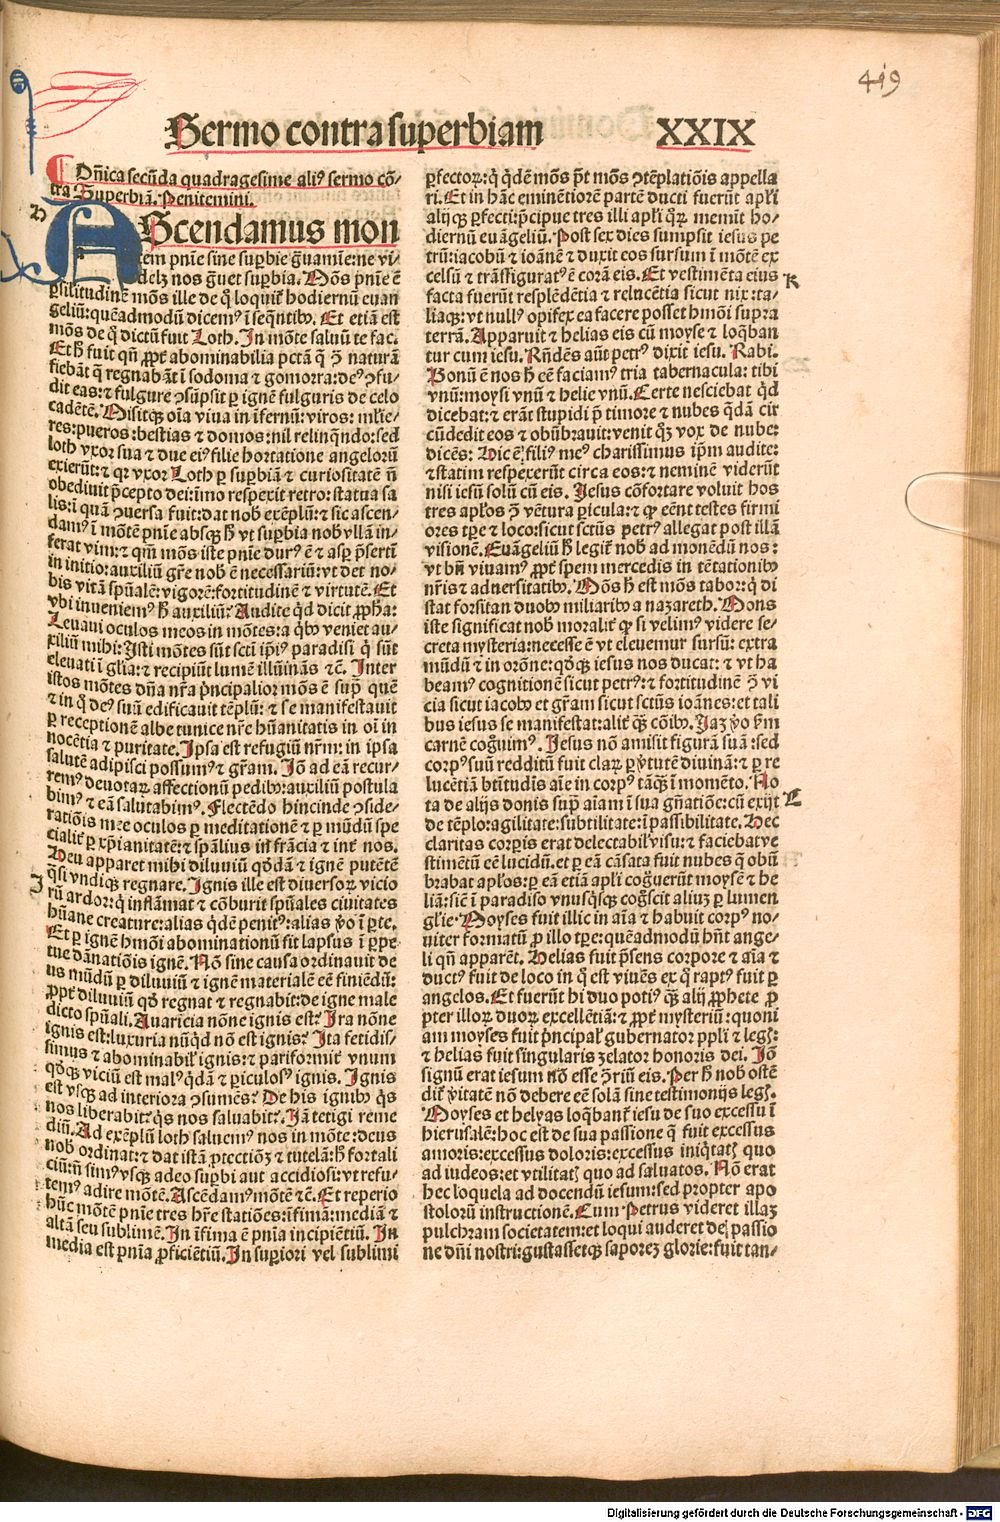 419
Sermo contra superbiam XXIX
Dn̄ica secūda quadragesime aliꝰ sermo cō-
tra Superbiā. Penitemini.
H
AScendamus mon
tem pn̄ie sine supbie g̃uamie: ne vi-
delz nos g̃uet supbia. Mōs pn̄ie ē
psilitudinē mōs ille de q̄ loquit̃ hodiernū euan
geliū: quēadmodū dicemꝰ ī seq̄ntibꝰ. Et etiā est
mōs de q̄ dictū fuit Loth. In mōte saluū te fac.
Et h̄ fuit qn̄ ꝓpt̃ abominabilia pctā q̄ ↄ̄ naturā
fiebāt q̄ regnabāt ī sodoma ⁊ gomorra: deꝰ ↄfu-
dit eas: ⁊ fulgure ↄsūpsit p ignē fulguris de celo
cadētē. Misitqꝫ oīa viua in īfernū: viros: ml̓ie-
res: pueros: bestias ⁊ domos: nil relinq̄ndo: sed
loth vxor sua ⁊ due eiꝰ filie hortatione angelorū
exierūt: ⁊ qꝛ vxor Loth p supbiā ⁊ curiositatē nō
obediuit p̄cepto dei: īmo respexit retro: statua sa
lis: ī quā ↄuersa fuit: dat nob̓ exēplū: ⁊ sic ascen-
damꝰ ī mōtē pn̄ie absqꝫ h̄ vt supbia nob̓ vllā in-
ferat vim: ⁊ qm̄ mōs iste pn̄ie durꝰ ē ⁊ asp p̄serti
in initio: auxiliū gr̄e nob̓ ē necessariū: vt det no-
bis vitā spūalē: vigorē: fortitudinē ⁊ virtutē. Et
vbi inueniemꝰ h̄ auxiliū? Audite qd̄ dicit ꝓpha:
Leuaui oculos meos in mōtes: a qb̓ꝰ veniet au-
xiliū mihi: Isti mōtes sūt scti ip̄iꝰ paradisi q̄ sūt
eleuati ī gl̓ia: ⁊ recipiūt lumē illūinās ⁊c̄. Inter
istos mōtes dn̄a nr̄a p̄ncipalior mōs ē sup̃ quē
⁊ in q̄ deꝰ suū edificauit tēplū: ⁊ se manifestauit
p receptionē albe tunice nr̄e hūanitatis in oī in
nocētia ⁊ puritate. Ipsa est refugiū nr̄m: in ipsa
salutē adipisci possumꝰ ⁊ gr̄am. Iō ad eā recur-
remꝰ deuotaꝝ affectionū pedibꝰ: auxiliū postula
bimꝰ ⁊ eā salutabimꝰ. Flectēdo hincinde ↄside-
ratiōis mee oculos p meditationē ⁊ p mūdū spe
cialit̃ p xp̄ianitatē: ⁊ spālius int̃ frācia ⁊ int̃ nos.
Heu apparet mihi diluuiū qd̄dā ⁊ ignē putētē
I
q̄si vndiqꝫ regnare. Ignis ille est diuersoꝝ vicio
rū ardor: q̄ inflāmat ⁊ cōburit spūales ciuitates
hūane creature: alias qd̄ē penitꝰ: alias v̓o ī pte.
Et p ignē hmōi abominationū fit lapsus ī ppe-
tue dānatiōis ignē. Nō sine causa ordinauit de
us mūdū p diluuiū ⁊ ignē materialē eē finiēdū:
ꝓpt̃ diluuiū qd̄ regnat ⁊ regnabit: de igne male
dicto spūali. Auaricia nōne ignis est? Ira nōne
ignis est: luxuria nūq̄d nō est ignis? Ita fetidis-
simus ⁊ abominabil̓ ignis: ⁊ pariformit̃ vnum
qd̄qꝫ viciū est malꝰ q̄dā ⁊ piculosꝰ ignis. Ignis
est vsqꝫ ad interiora ↄsumēs? De his ignibꝰ q̄s
nos liberabit? q̄s nos saluabit? Iā tetigi reme
diū. Ad exēplū loth saluemꝰ nos in mōte: deus
nob̓ ordinat: ⁊ dat istā ꝓtectiōꝫ ⁊ tutelā: h̄ fortali
ciū: n̄ simꝰ vsqꝫ adeo supbi aut accidiosi: vt refu-
temꝰ adire mōtē. Ascēdamꝰ mōtē ⁊c̄. Et reperio
hūc mōtē pn̄ie tres hr̄e statiōes: īfimā: mediā ⁊
altā seu sublimē. In īfima ē pn̄ia incipiētiū. In
media est pn̄ia ꝓficiētiū. In supiori vel sublimi
pfectoꝝ: q̄ qd̄ē mōs pt̃ mōs ↄtēplatiōis appella
ri. Et in hāc eminētiorē partē ducti fuerūt apl̓i
alijqꝫ pfecti: p̄cipue tres illi apl̓i q̄ꝝ meminit ho-
diernū euāgeliū. Post sex dies sumpsit iesus pe
trū: iacobū ⁊ ioānē ⁊ duxit eos sursum ī mōtē ex
celsū ⁊ trāsfiguratꝰ ē corā eis. Et vestimēta eius
K
facta fuerūt resplēdētia ⁊ relucētia sicut nix: ta-
liaqꝫ: vt nullꝰ opifex ea facere posset hmōi supra
terrā. Apparuit ⁊ helias eis cū moyse ⁊ loq̄ban
tur cum iesu. Rn̄dēs aūt petrꝰ dixit iesu. Rabi.
Bonū ē nos h̄ eē faciamꝰ tria tabernacula: tibi
vnū: moysi vnū ⁊ helie vnū. Certe nesciebat qd̄
dicebat: ⁊ erāt stupidi p̄ timore ⁊ nubes q̄dā cir
cūdedit eos ⁊ obūbrauit: venit qꝫ vox de nube:
dicēs: Hic ē filiꝰ meꝰ charissimus ip̄m audite:
⁊ statim respexerūt circa eos: ⁊ neminē viderūt
nisi iesū solū cū eis. Jesus cōfortare voluit hos
tres apl̓os ↄ̄ ventura picula: ⁊ qꝛ eēnt testes firmi
ores tp̄e ⁊ loco: sicut sctūs petrꝰ allegat post illā
visionē. Euāgeliū h̄ legit̃ nob̓ ad monēdū nos:
vt bn̄ viuamꝰ ꝓpt̃ spem mercedis in tētationibꝰ
nr̄is ⁊ aduersitatibꝰ. Mōs h̄ est mōs tabor: q̄ di
stat forsitan duobꝰ miliaribꝰ a nazareth. Mons
iste significat nob̓ moralit̃ qꝛ si velimꝰ videre se-
creta mysteria: necesse ē vt eleuemur sursū: extra
mūdū ⁊ in orōne: qd̄qꝫ iesus nos ducat: ⁊ vt ha
beamꝰ cognitionē sicut petrꝰ: ⁊ fortitudinē ↄ̄ vi
cia sicut iacobꝰ et gr̄am sicut sctūs ioānes: et tali
bus iesus se manifestat: alit̃ q̄ꝫ cōibꝰ. Iaz v̓o p̄m
carnē cog̃uimꝰ. Jesus nō amisit figurā suā: sed
corpꝰ suū redditū fuit claꝝ p v̓tutē diuinā: ⁊ p re
lucētiā btītudīs aīe in corpꝰ tāq̄ꝫ ī momēto. No
ta de alijs donis sup̃ aīam ī sua gn̄atiōe: cū exijt
L
de tēplo: agilitate: subtilitate: ī passibilitate. Hec
claritas corpis erat delectabil̓ visu: ⁊ faciebat ve
stimētū eē lucidū. et p eā cāsata fuit nubes q̄ obū
brabat apl̓os: p eā etiā apl̓i cog̃uerūt moysē ⁊ he
liā: sic̄ ī paradiso vnusq̄sqꝫ cog̃scit aliuꝫ p lumen
gl̓ie. Moyses fuit illic in aīa ⁊ habuit corpꝰ no-
uiter formatū ꝓ illo tp̄e: quēadmodū hn̄t ange-
li qn̄ apparēt. Helias fuit p̄sens corpore ⁊ aīa ⁊
ductꝰ fuit de loco in q̄ est viuēs ex q̄ raptꝰ fuit p
angelos. Et fuerūt hi duo potiꝰ q̄ꝫ alij ꝓphete ꝓ
pter illoꝝ duoꝝ excellētiā: ⁊ ꝓpt̃ mysteriū: quoni
am moyses fuit p̄ncipal̓ gubernator ppl̓i ⁊ legꝭ:
⁊ helias fuit singularis zelator honoris dei. Iō
signū erat iesum nō esse ↄ̄riū eis. Per h̄ nob̓ ostē
dit̃ v̓itatē nō debere eē solā sine testimonijs legꝭ.
Moyses et helyas loq̄banṫ iesu de suo excessu ī
hierusalē: hoc est de sua passione q̄ fuit excessus
amoris: excessus doloris: excessus iniq̄tatꝭ quo
ad iudeos: et vtilitatꝭ quo ad saluatos. Nō erat
hec loquela ad docendū iesum: sed propter apo
stolorū instructionē. Cum Petrus videret illaꝫ
pulchram societatem: et loqui auderet de passio
ne dn̄i nostri: gustassetqꝫ saporeꝫ glorie: fuit tan-
Digitalisierung gefördert durch die Deutsche Forschungsgemeinschaft - DFG